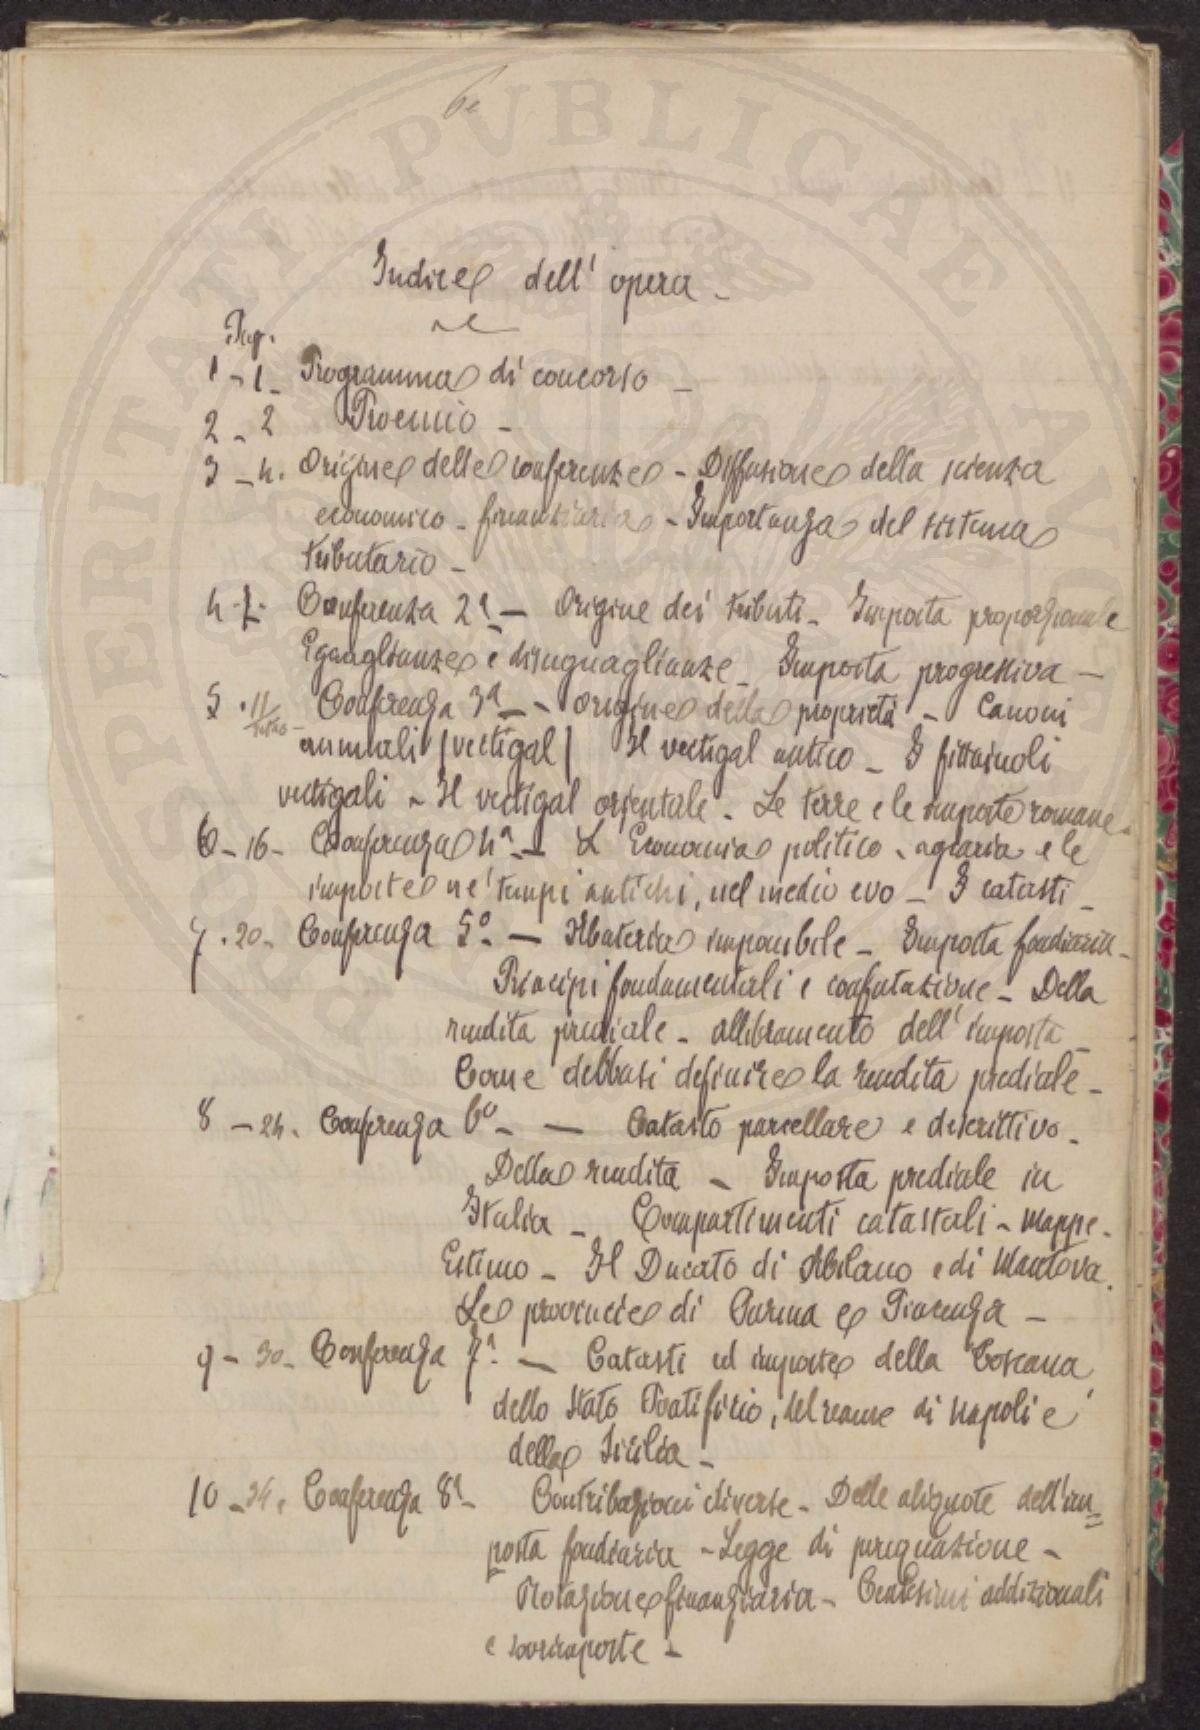 Indice dell' opera -
Pag.
1 - 1 - Programma di concorso -
2 - 2 Proemio -
3 - 4. Origine delle conferenze - Diffusione della scienza
economico - finanziaria - Importanza del sistema
tributario -
4 - 7. Conferenza 2ª - Origine dei tributi - Imposta proporzionale
Eguaglianze e disuguaglianze - Imposta progressiva -
5 - 11 Conferenza 3ª - Origine della proprietà - Canoni
annuali (vectigal) Il vectigal antico - I fittaiuoli
vectigali - Il vectigal orientale - Le terre e le imposte romane -
6 - 16 - Conferenza 4ª - L'Economia politico - agraria e le
imposte ne' tempi antichi, nel medio evo - I catasti -
7 - 20 - Conferenza 5ª - Materia imponibile - Imposta fondiaria -
Principi fondamentali e confutazione - Della
rendita prediale - Allibramento dell' imposta -
Come debbasi definire la rendita prediale -
8 - 24 - Conferenza 6ª - Catasto parcellare e descrittivo -
Della rendita - Imposta prediale in
Italia - Compartimenti catastali - Mappe -
Estimo - Il Ducato di Milano e di Mantova.
Le provincie di Parma e Piacenza -
9 - 30 - Conferenza 7ª - Catasti ed imposte della Toscana,
dello Stato Pontificio, del reame di Napoli e
della Sicilia -
10 - 34. Conferenza 8ª - Contribuzioni diverse - Delle aliquote dell'im=
posta fondiaria - Legge di perequazione -
Notazione finanziaria - Centesimi addizionali
e sovrimposte -
SPERITATI PUBLICAE AVGENDAE